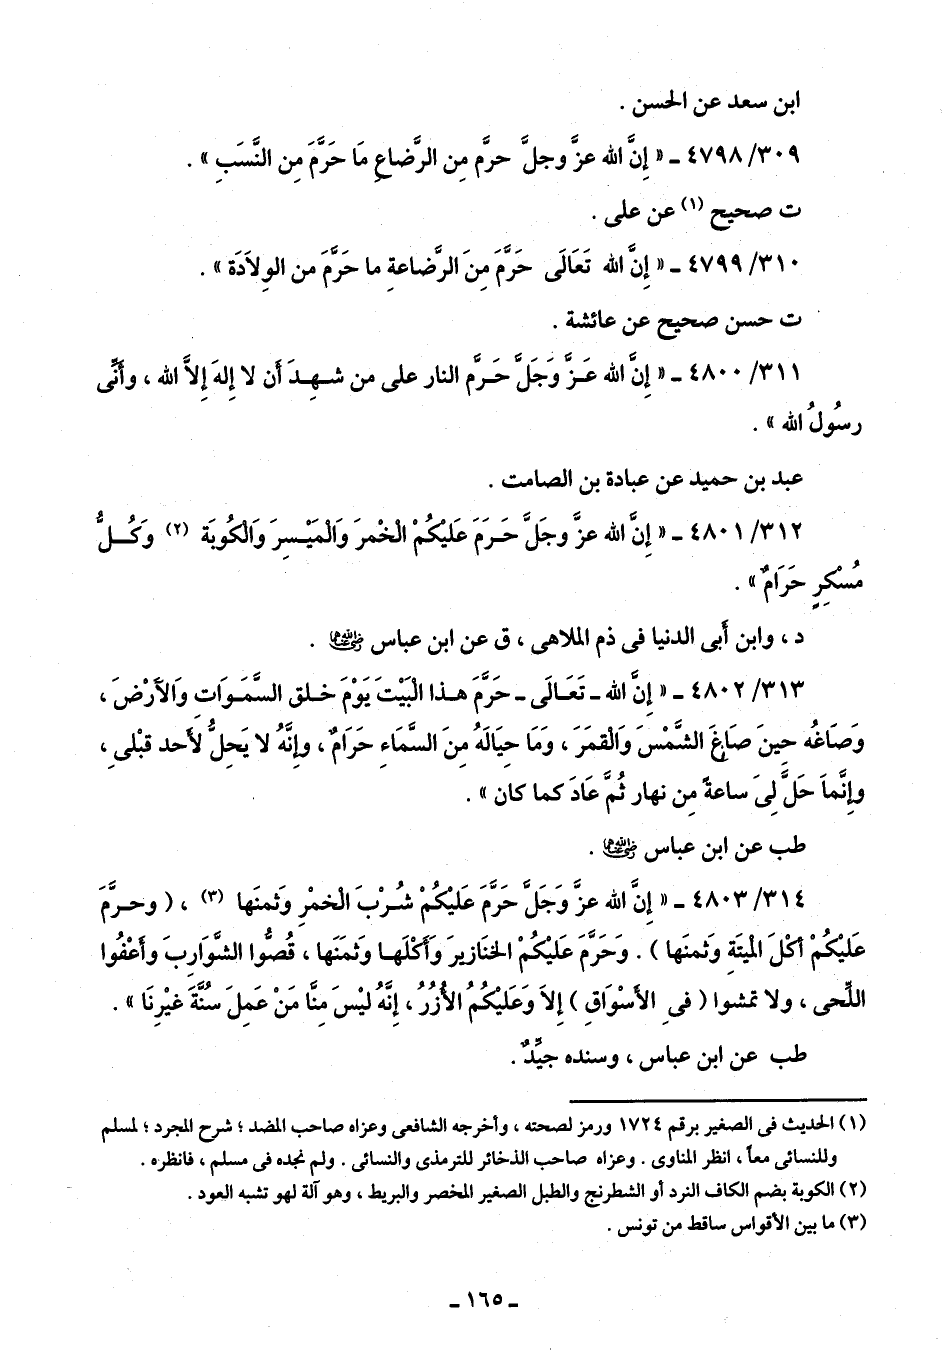 ابن سعد عن الحسن .
٤٧٩٨/٣٠٩ ـ « إِنَّ الله عزَّ وجلَّ حرَّم مِن الرَّضاعِ مَا حَرَّمَ مِن النَّسَبِ » .
ت صحيح (١) عن على .
٤٧٩٩/٣١٠ ـ « إِنَّ الله تَعَالَى حَرَّمَ مِنَ الرَّضاعةِ ما حَرَّمَ من الوِلاَدَة » .
ت حسن صحيح عن عائشة .
٤٨٠٠/٣١١ ـ « إِنَّ الله عَـزَّ وَجَلَّ حَـرَّم النار على من شـهِـدَ أَن لا إِلهَ إِلاَّ الله ، وأَنِّى
رسُولُ الله » .
عبد بن حميد عن عبادة بن الصامت .
٤٨٠١/٣١٢ ـ « إِنَّ الله عزَّ وجلَّ حَـرَمَ عَلَيْكُمْ الْخَمرَ وَالْمَيْـسِرَ وَالْكُوبَةَ (٢) وَكُــلُّ
مُسْكِرٍ حَرَامٌ » .
د ، وابن أَبى الدنيا فى ذم الملاهى ، ق عن ابن عباس رضي الله عنهما .
٤٨٠٢/٣١٣ ـ « إِنَّ الله ـ تَعَـالَى ـ حَرَّمَ هـذا الْبَيْتَ يَوْمَ خـلق السَّمَـوَاتِ وَالأَرْضَ ،
وَصَاغُه حِينَ صَاغَ الشَّمْسَ وَالْقمَرَ ، وَمَا حِيَالَهُ مِنَ السَّمَاءِ حَرَامٌ ، وإِنَّهُ لا يَحِلُّ لأَحد قبْلىِ ،
وإِنَّماَ حَلَّ لِىَ ساعةً مِن نهار ثُمَّ عَادَ كما كان » .
طب عن ابن عباس رضي الله عنهما .
٤٨٠٣/٣١٤ ـ « إِنَّ الله عزَّ وَجَلَّ حَرَّمَ عَلَيْكُمْ شُـرْبَ الْخمْرِ وثَمنَها (٣) ، ( وحـرَّمَ
عَلَيْكُمْ أَكْلَ المْيتَةِ وَثمنَها ) . وَحَرَّمَ عَلَيْكُمْ الخنَازيرَ وَأَكْلَهـا وثَمَنَها ، قُصُّوا الشَّوَارِبَ وأَعْفُوا
اللِّحى ، ولا تمشوا ( فىِ الأَسْوَاقِ ) إِلاَ وَعَلَيْكُمُ الأُزُرُ ، إِنَّهُ لَيْسَ مِنَّا مَنْ عَمِلَ سُنَّةَ غَيْرِنَا » .
طب عن ابن عباس ، وسنده جيِّدٌ .
(١) الحديث فى الصغير برقم ١٧٢٤ ورمز لصحته ، وأخرجه الشافعى وعزاه صاحب المضد ؛ شرح المجرد ؛ لمسلم
وللنسائى معاً ، انظر المناوى . وعزاه صاحب الذخائر للترمذى والنسائى . ولم نجده فى مسلم ، فانظره .
(٢) الكوبة بضم الكاف النرد أو الشطرنج والطبل الصغير المخصر والبربط ، وهو آلة لهو تشبه العود .
(٣) ما بين الأقواس ساقط من تونس .
ـ ١٦٥ ـ